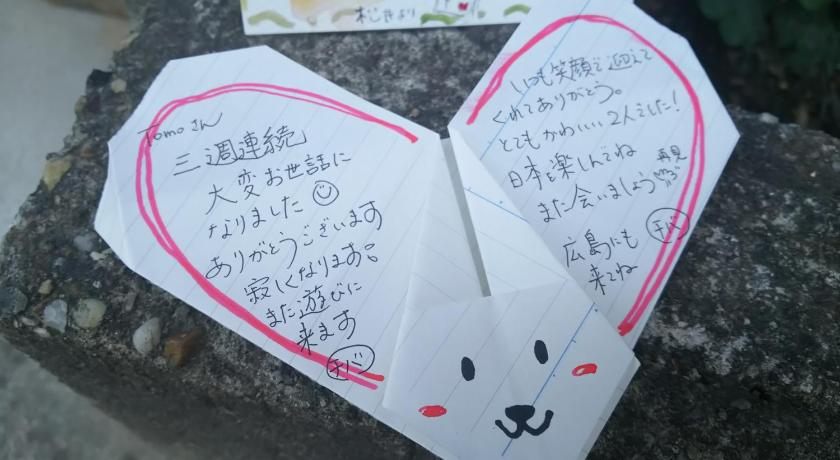 より
Tomoさん
三週連続
大変お世話に
なりました
ありがとうございます
寂しくなります。
また遊びに
来ます
チバ
いつも笑顔で迎えて
くれてありがとう。
とてもかわいい2人でした!
日本を楽しんでね
また会いましょう 再見
広島にも
来てね
チバ